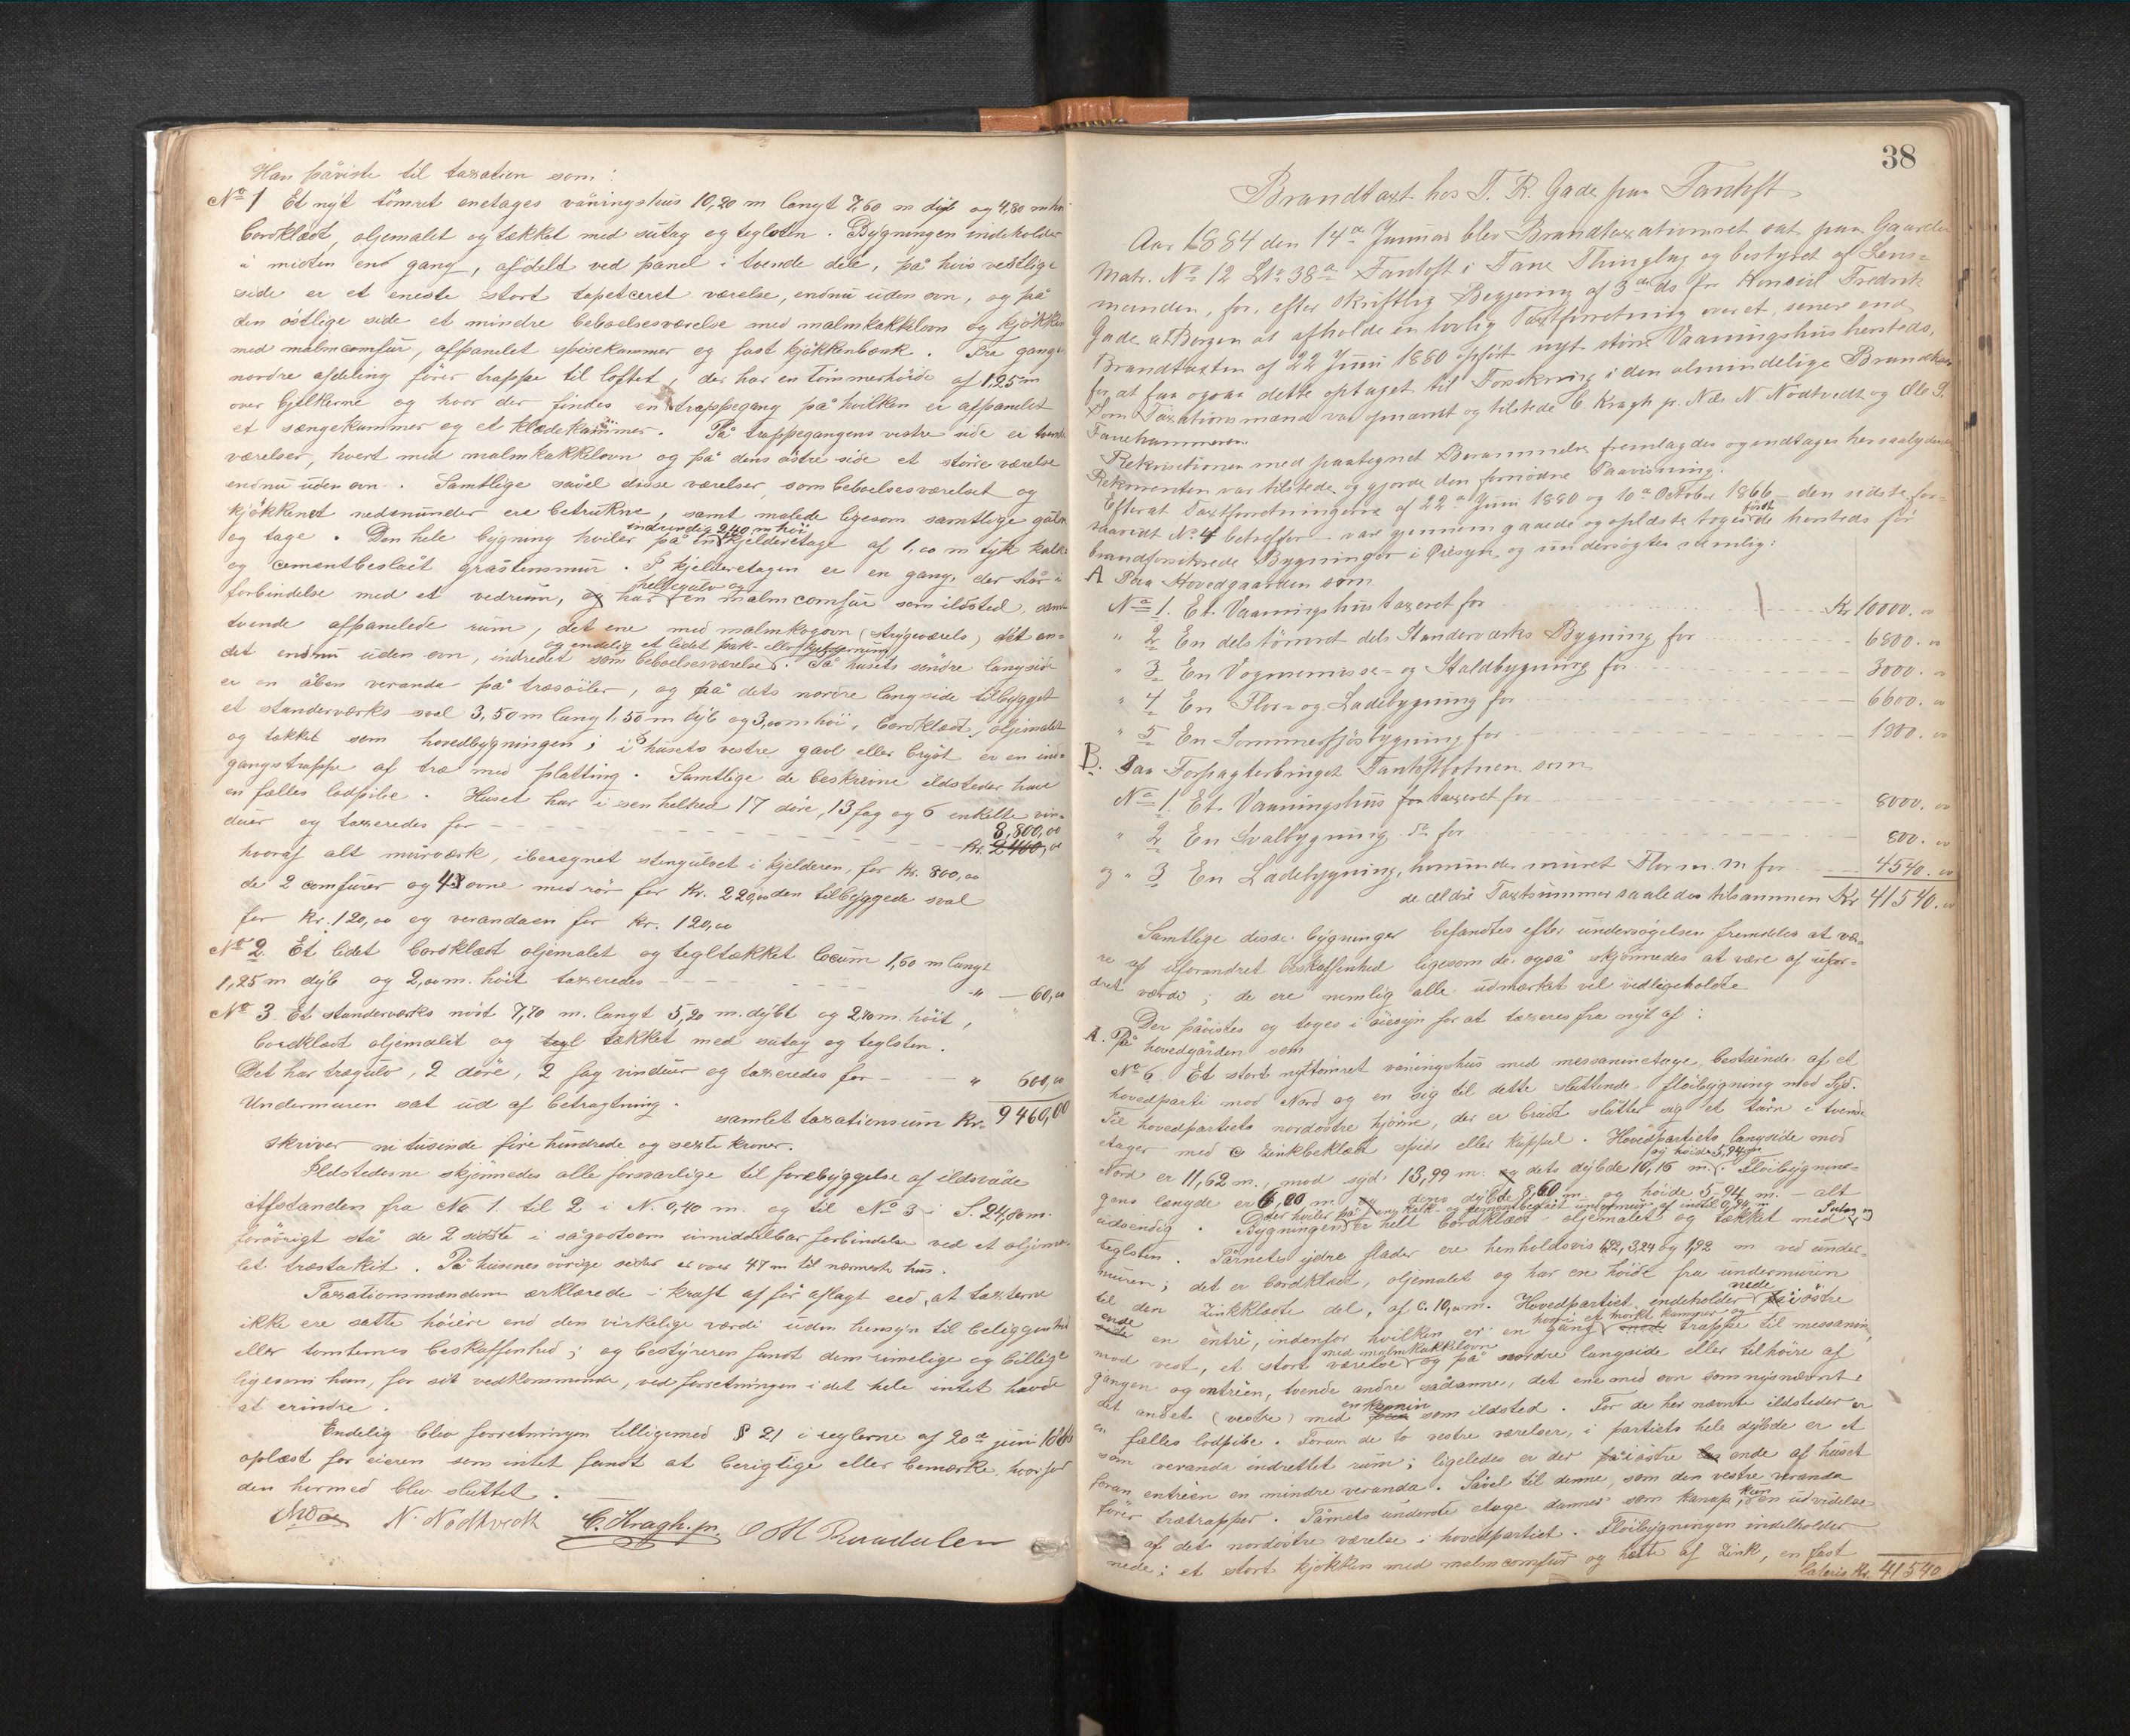 Han påviste til taxation som:
No 1 Et nyt tömret enetages våningshus 10,20 m langt 7,60 m dyb og 4,80 m höi
bordklædt, oljemalet og tækket med sutag og teglsten. Bygningen indeholder
i midten end gang, afdelt ved panel i tvende dele, på hvis vestlige
side er et eneste stort tapetceret værelse, endnu uden ovn, og på
den östlige side et mindre beboelsesværelse med malmkakkelovn og kjökken
med malmcomfur, afpanelet spisekammer og fast kjökkenbænk. Fra gangens
nordre afdeling förer trappe til loftet, der har en tömmerhöide af 1,25 m
over bjelkerne og hvor der findes en trappegang på hvilken er afpanelet
et sængekammer og et klædekammer. På trappegangens vestre side er tvende
værelser, hvert med malmkakkelovn og på dens östre side et större værelse
endnu uden ovn. Samtlige såvel disse værelser, som beboelsesværelset og
kjökkenet nedenunder ere betrukne, samt malede ligesom samtlige gulve
og tage. Den hele bygning hviler på en indvendig 2,40 m höi kjelderetage af 1,00 m tyk kalk-
og cementbeslået gråstensmur. I kjelderetagen er en gang, der står i
forbindelse med et vedrum, og har hellegulv og en malmcomfur som ildsted, samt
tvende afpanelede rum, det ene med malmkogovn (strygeværels) det an-
det endnu uden ovn, indredet som beboelsesværelse og endelig et lidet pak- eller skydderrum. På husets söndre langside
er en åben veranda på træsöiler, og på dets nordre langside tilbygget
et standerværks sval 3,50 m lang 1,50 m dyb og 3,00 m höi, bordklædt, oljemalet
og tækket som hovedbygningen; i husets vestre gavl eller bryst er en ind-
gangstrappe af træ med platting. Samtlige de beskrevne ildsteder have
en fælles lodpibe. Huset har i sen helhed 17 döre, 13 fag og 6 enkelte vin-
duer og taxeredes for - - - Kr. 2400,00 8,800,00
hvoraf alt murværk, iberegnet stengulvet i kjelderen, for Kr. 800,00
de 2 comfurer og 4 ovne med rör for Kr. 220,00 den tilbyggede sval
for Kr. 120,00 og verandaen for Kr. 120,00
No 2. Et lidet bordklædt oljemalet og tegltækket locum 1,50 m langt
1,25 m dyb og 2,00 m. höit taxeredes - - - " - 60,00
No 3. Et standerværks nöst 7,70 m. langt 5,20 m. dybt og 2,70 m. höit,
bordklædt oljemalet og tegl tækket med sutag og teglsten.
Det har trægulv, 2 döre, 2 fag vinduer og taxeredes for - - " 600,00
Undermuren sat ud af betragtning. samlet taxationsum Kr. 9460,00
skriver ni tusinde fire hundrede og sexte kroner.
Ildstederne skjönnedes alle forsvarlige til forebyggelse af ildsvåde
Afstanden fra No 1. til 2 i N. 0,40 m. og til No 3 i S. 24,00 m.
forövrigt stå de 2 sidste i sågodtsom umiddelbar forbindelse ved et oljema-
let træstakit. På husenes övrige sider er over 47 m til nærmeste hus.
Taxationsmændene erklærede i kraft af för aflagt eed, at taxterne
ikke ere satte höiere end den virkelige værdi uden hensyn til beliggenhed
eller tomternes beskaffenhed; og bestyreren fandt dem rimelige og billige
ligesom han, for sit vedkommende, ved forretningen i det hele intet havde
at erindre.
Endelig blev forretningen tilligemed § 21 i reglerne af 20de juni 18
oplæst for eieren som intet fandt at berigtige eller bemærke, hvorfor
den hermed blev sluttet.
N. Nödtvedt C. Kragh. pn. O M Raudalen
38
Brandtaxt hos T. R. Gade paa Fantoft
Aar 1884 den 14de Januar blev Brandtaxationsret sat paa Gaarden
Matr. No 12 Lbr. 38a Fantoft i Fane Thinglag og bestyret af Lens-
manden, for, efter skriftlig Begjering af 3die ds fra Konsul Fredrik
Gade at Bergen at afholde en lovlig Taxtforretning over et, senere end
Brandtaxten af 22 Juni 1880 opfört nyt större Vaaningshus hersteds,
for at faa ogsaa dette optaget til Forsikring i den almindelige Brandkasse
Som Taxationsmænd var opnævnt og tilstede C. Kragh p. Næs N. Nödtvedt og Ole P.
Fanehammeren
Rekvisitionen med paategnet Berammelse fremlagdes og indtages her saalydende
Rekvirenten var tilstede og gjorde den fornödne Paavisning.
Efterat Taxtforretningerne af 22de Juni 1880 og 10de October 1866 - den sidste for-
saavidt No 4 betreffer - var gjennemgaaede og oplæste toges först de hersteds för
brandforsikrede Bygninger i Öiesyn og undersögtes nemlig:
A Paa Hovedgaarden som
No 1. Et Vaaningshus taxeret for Kr 10000.00
" 2 En dels tömret dels Standerværks Bygning for 6800.00
" 3 En Vognremisse- og Staldbygning for 3000.00
" 4 En Flor- og Ladebygning for 6600.00
" 5 En Sommerfjösbygning for 1800.00
B. Paa Forpagterbruget Fantoftbotnen som
No 1. Et Vaaningshus for taxeret for 8000.00
" 2 En Svalbygning do for 800.00
og " 3 En Ladebygning, herunder muret Flor m. m for 4540.00
de ældre Taxtsummer saaledes tilsammen Kr 41540.00
Samtlige disse bygninger befandtes efter undersögelsen fremdeles at væ-
re af uforandret beskaffenhed ligesom de også skjönnedes at være af ufor-
dret værdi; de ere nemlig alle udmærket vel vedligeholdte
Der påvistes og toges i öiesyn for at taxeres fra nyt af:
A. På hovedgården som
No 6. Et stort nyt tömret våningshus med messaninetage, bestående af et
hovedparti mod Nord og en sig til dette sluttende flöibygning mod Syd.
Til hovedpartiets nordöstre hjörne, der er brudt slutter sig et tårn i tvende
etager med zinkbeklædt spids eller kuppel. Hovedpartiets langside mod
Nord er 11,62 m., mod syd 13,99 m. og dets dybde 10,16 m. og höide 5,94 m. Flöibygnin-
gens længde er 6,00 m og dens dybde 8,60 m og höide 5,94 m. - alt
udvendig. Bygningen der hviler på en kalk- og cementbeslået undermur af indtil 0,94 m er helt bordklædt oljemalet og tækket med Sutag og
teglsten. Tårnets ydre flader ere henholdsvis 1,92, 3,24 og 1,92 m ved under-
muren; det er bordklædt, oljemalet og har en höide fra undermuren
til den zinkklædte del, af c. 10,00 m. Hovedpartiet indeholder nede på i östre
ende side en entré, indenfor hvilken er en gang hvori et mörkt kammer og med trappe til messanin,
mod vest, et stort værelse med malmkakkelovn og på nordre langside eller tilhöire af
gangen og entréen, tvende andre sådanne, det ene med ovn som nysnævnt
det andet (vestre) med en kamin som ildsted. For de her nævnte ildsteder er
en fælles lodpibe. Foran de to vestre værelser, i partiets hele dybde er et
som veranda indrettet rum; ligeledes er der på i östre ende af huset
foran entréen en mindre veranda. Såvel til denne, som den vestre veranda
förer trætrapper. Tårnets underste etage danner som karnap, kun en udvidelse
af det nordöstre værelse i hovedpartiet. Flöibygningen indeholder
nede: et stort kjökken med malmcomfur og hætte af zink, en fast
lateris Kr. 41540